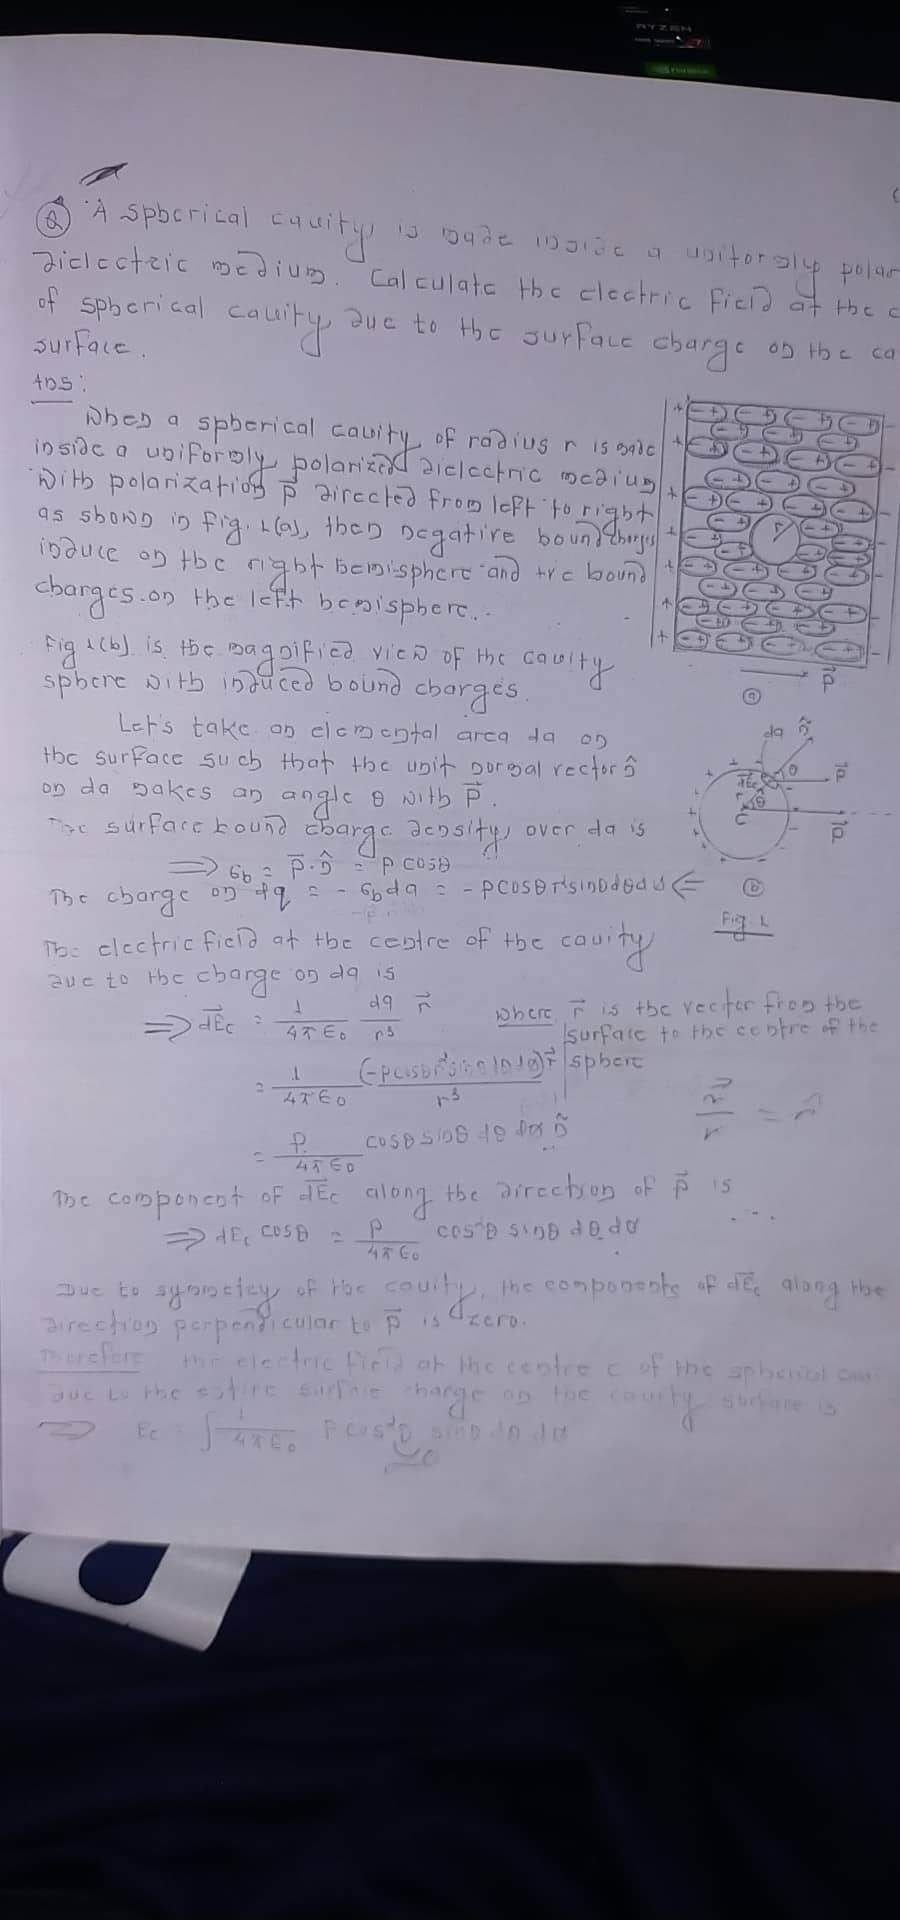 RYZEN
7
Q A spherical cavity is made inside a uniformly polar
dielectric medium. Calculate the electric field at the c
of spherical cavity due to the surface charge on the ca
surface.
Ans:
When a spherical cavity of radius r is made
inside a uniformly polarized dielectric medium
with polarization P⃗ directed from left to right
as shown in fig. 1(a), then negative bound charges
induce on the right hemisphere and +ve bound
charges on the left hemisphere..
Fig 1(b) is the magnified view of the cavity
sphere with induced bound charges.
Let's take an elemental area da on
the surface such that the unit normal vector n̂
on da makes an angle θ with P⃗.
The surface bound charge density, over da is
⇒ σb = P⃗·n̂ = P cosθ
The charge on dq = - σb da = - P cosθ r² sinθ dθ dα ⇐
The electric field at the centre of the cavity
due to the charge on da is
⇒ dE⃗c = 1/4πε0 dq/r³ r⃗ where r⃗ is the vector from the
surface to the centre of the
sphere
= 1/4πε0 (-P cosθ r² sinθ dθ dα) r⃗ / r³
r⃗/r = n̂
= P/4πε0 cosθ sinθ dθ dα n̂
The component of dE⃗c along the direction of P⃗ is
⇒ dEc cosθ = P/4πε0 cos²θ sinθ dθ dα
Due to symmetry of the cavity, the components of dE⃗c along the
direction perpendicular to P⃗ is zero.
Therefore the electric field at the centre c of the spherical cavi
due to the entire surface charge on the cavity surface is
⇒ Ec = ∫ 1/4πε0 P cos²θ sinθ dθ dα
r
P⃗
a
da n̂
θ P⃗
dE⃗c
r θ
c P⃗
b
Fig. 1